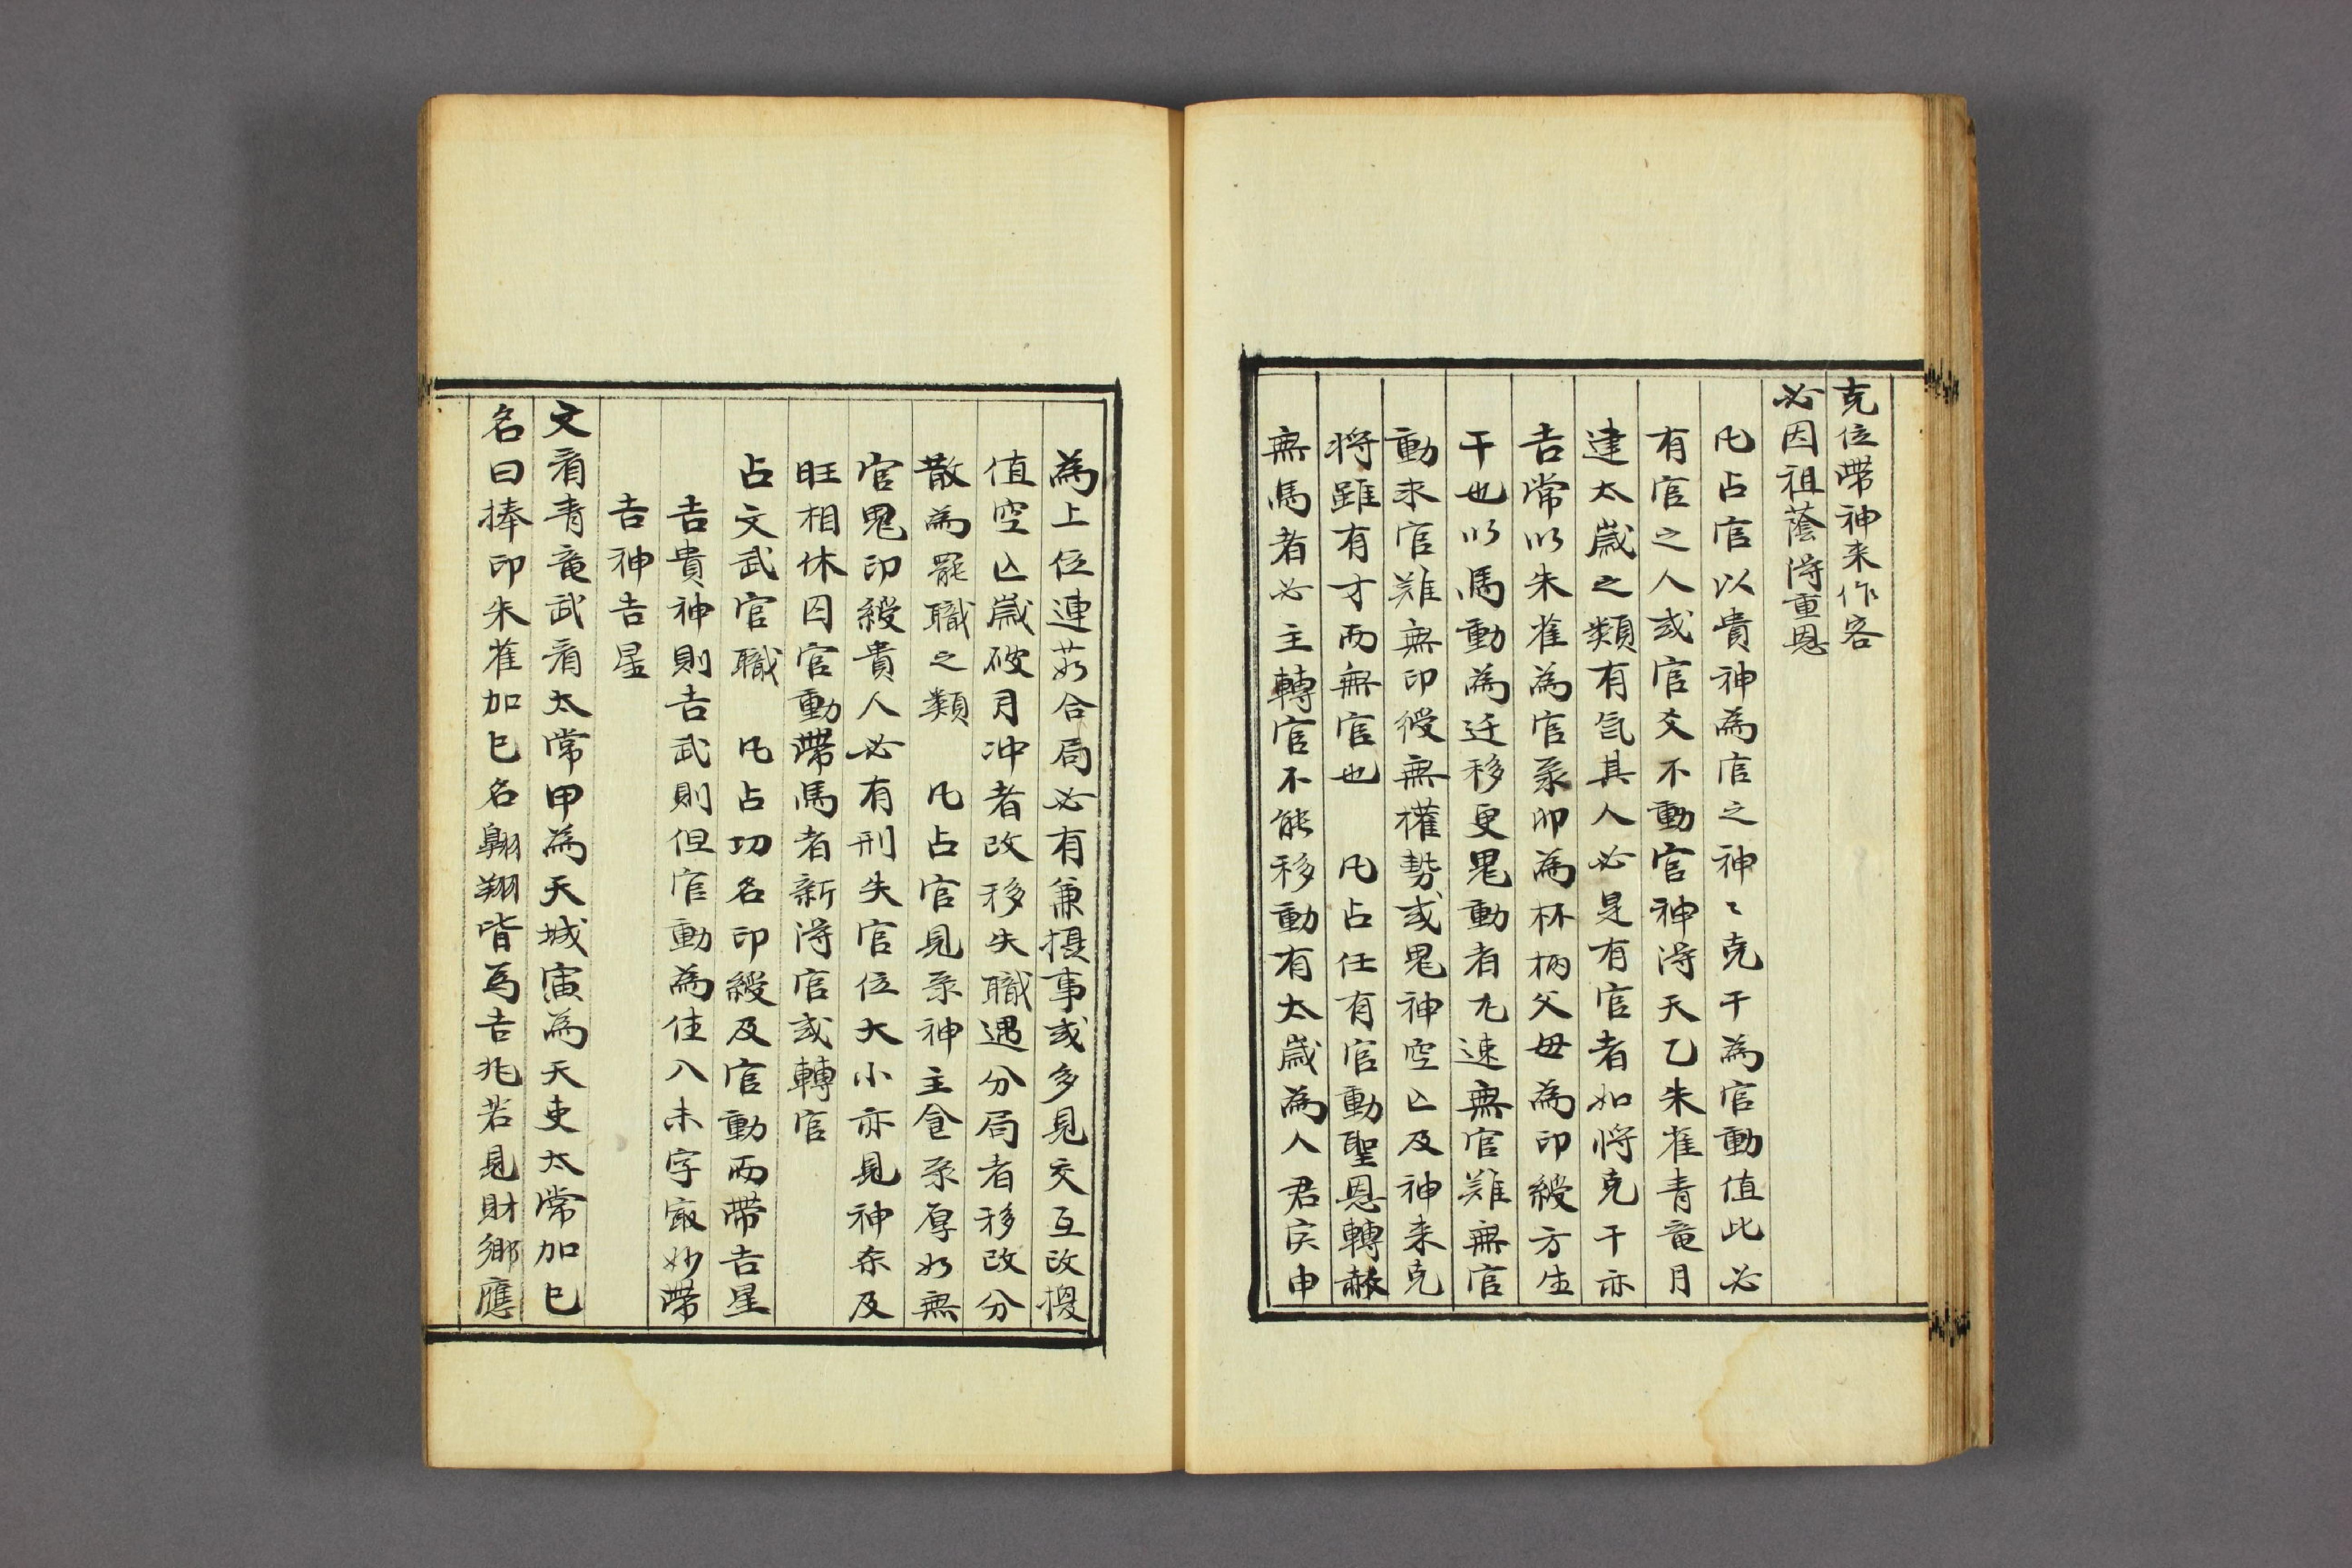 克位帶神来作客
必因祖蔭淂重恩
凢占官以貴神為官之神〻克干為官動值此必
有官之人或官爻不動官神淂天乙朱雀青竜月
建太歲之類有氣其人必是有官者如將克干亦
吉常以朱雀為官系卯為杯柄父母為印綬方生
干也以馬動為迁移更鬼動者尢速無官難無官
動求官難無印綬無權勢或鬼神空亡及神来克
將雖有才而無官也　凢占任有官動聖恩轉赦
無馬者必主轉官不能移動有太歲為人君戌申
為上位連茹合局必有兼攝事或多見交互改換
值空亡歲破月冲者改移失職遇分局者移改分
散為罷職之類　凢占官見系神主食系厚如無
官鬼印綬貴人必有刑失官位大小亦見神杀及
旺相休囚官動帶馬者新淂官或轉官
占文武官職　凢占功名印綬及官動而帶吉星
吉貴神則吉武則但官動為佳入未字㝡妙帶
吉神吉星
文看青竜武看太常甲為天城寅為天吏太常加巳
名曰捧印朱雀加巳名翱翔皆為吉兆若見財鄉應